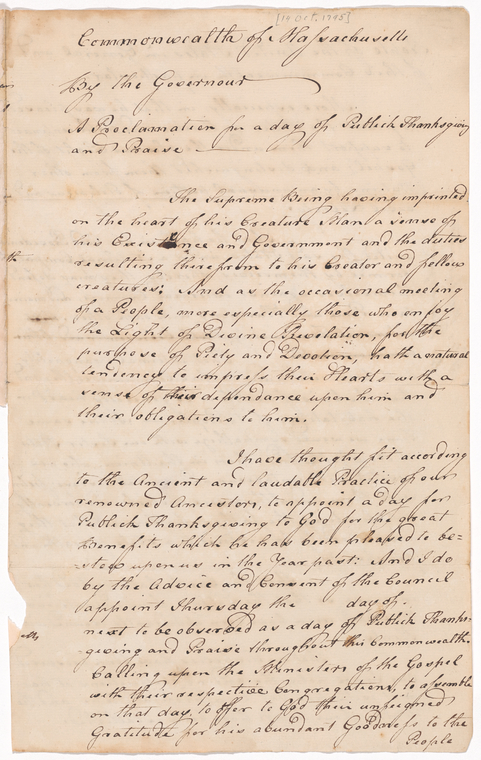 [14 Oct. 1795]
Commonwealth of Massachusetts
By the Governour
A Proclamation for a day of Publick Thanksgiving
and Praise
The Supreme Being having imprinted
on the heart of his Creature Man a sense of
his Existence and Government and the duties
resulting therefrom to his Creator and fellow
creatures: And as the occasional meeting
of a People, more especially those who enjoy
the Light of Divine Revelation, for the
purpose of Piety and Devotion, hath a natural
tendency to impress their Hearts with a
sense of their dependance upon him and
their obligations to him.
I have thought fit according
to the Ancient and laudable Practice of our
renowned Ancestors, to appoint a day for
Publick Thanksgiving to God for the great
Benefits which he has been pleased to be=
=stow upon us in the Year past: And I do
by the Advice and Consent of the Council
appoint Thursday the day of
next to be observed as a day of Publick Thanks-
-giving and Praise throughout this Commonwealth.
Calling upon the Ministers of the Gospel
with their respective Congregations, to assemble
on that day, to offer to God their unfeigned
Gratitude for his abundant Goodness to the
People